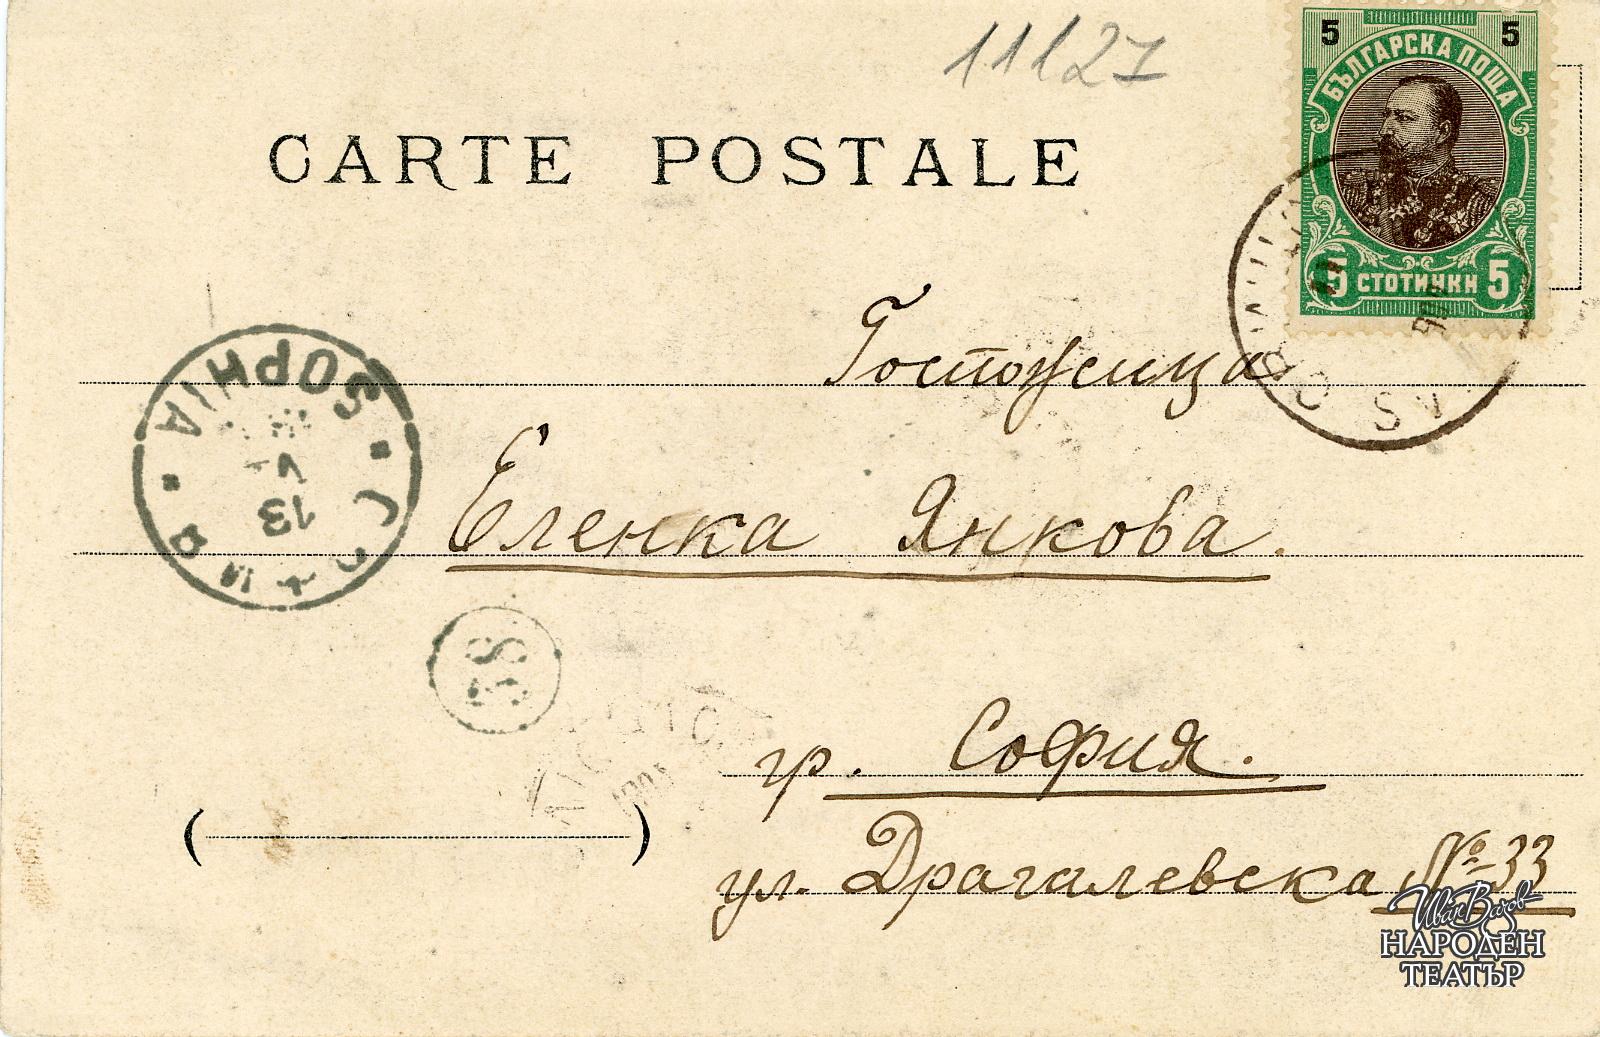 11127
CARTE POSTALE
5 5
БЪЛГАРСКА ПОЩА
5 СТОТИНКИ 5
Госпожица
Еленка Янкова.
SOPHIA
V
13
38
гр. София.
ул. Драгалевска № 33
Иван Вазов
НАРОДЕН
ТЕАТЪР